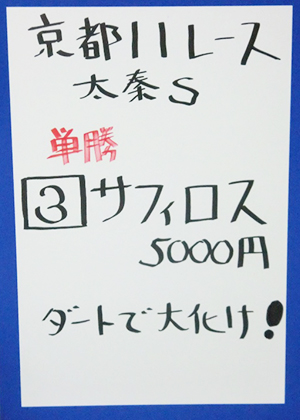 京都11レース
太秦S
単勝
3 サフィロス
5000円
ダートで大化け!